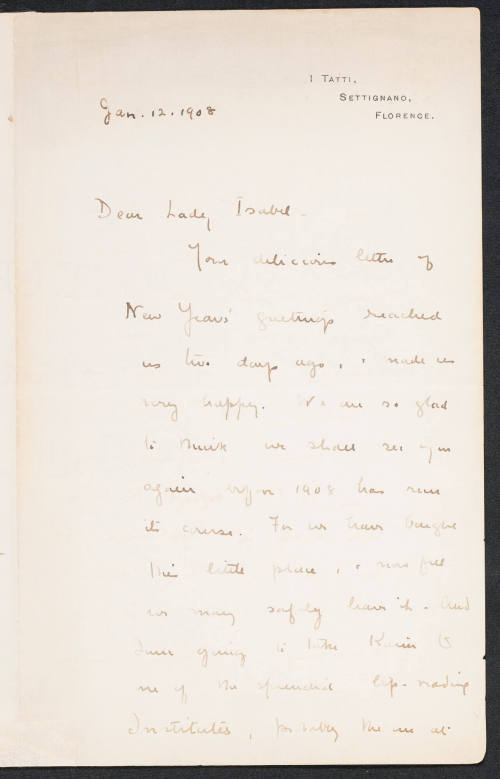 I Tatti,
Settignano,
Florence.
Jan. 12. 1908
Dear Lady Isabel -
Your delicious letter of
New Years' greetings reached
us two days ago, & made us
very happy. We are so glad
to think we shall see you
again before 1908 has run
its course. For we have bought
this little place, & now feel
we may safely leave it. And
I am going to take Karin to
one of the splendid lip-reading
Institutes, probably the one at